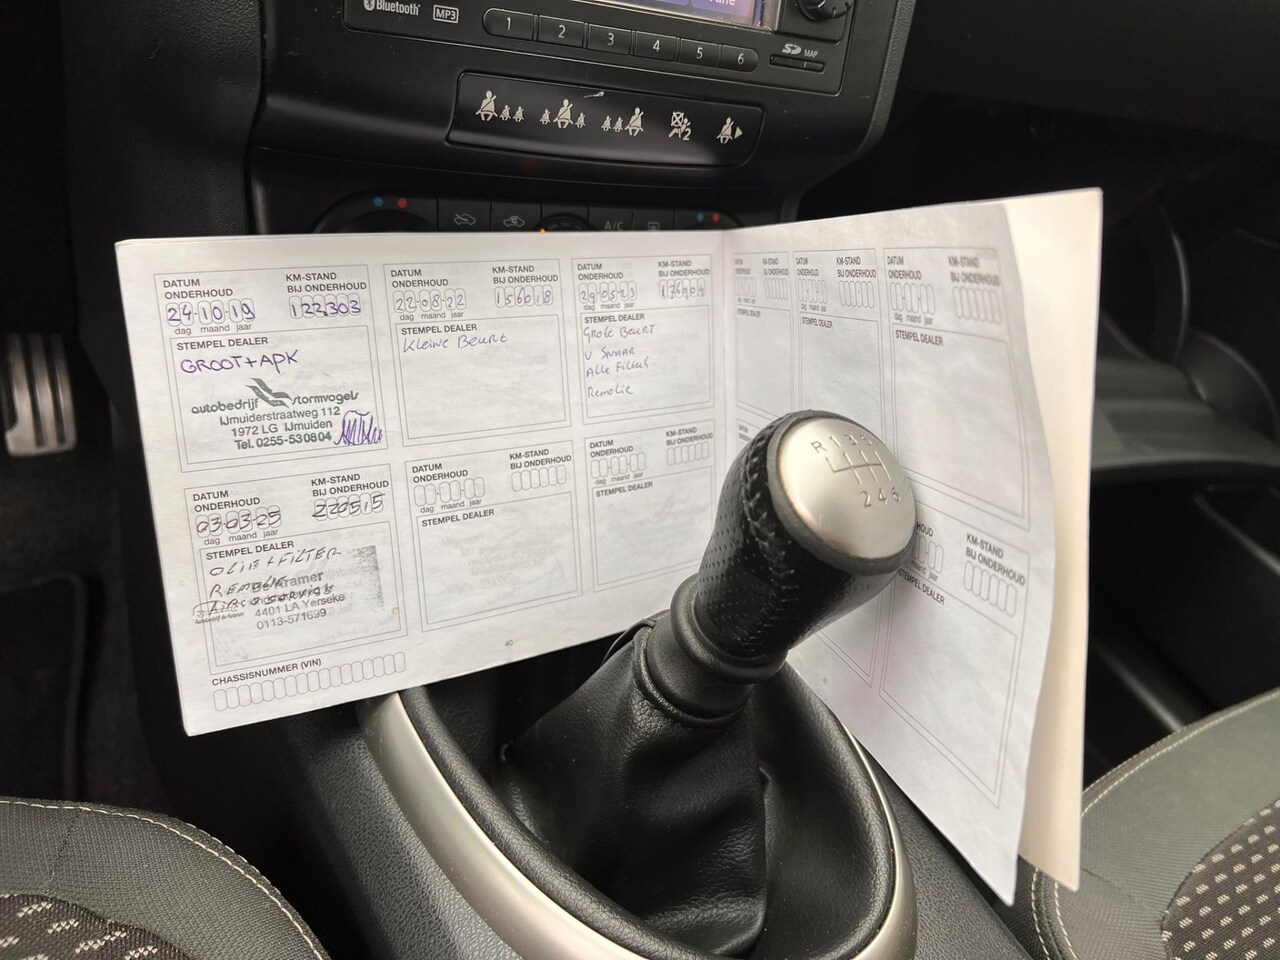 Bluetooth
MP3
1 2 3 4 5 6
SD MAP
A/C
DATUM ONDERHOUD
24-10-19
dag maand jaar
KM-STAND BIJ ONDERHOUD
122303
STEMPEL DEALER
GROOT + APK
autobedrijf stormvogels
IJmuiderstraatweg 112
1972 LG IJmuiden
Tel. 0255-530804
DATUM ONDERHOUD
22-08-22
dag maand jaar
KM-STAND BIJ ONDERHOUD
156018
STEMPEL DEALER
Kleine Beurt
DATUM ONDERHOUD
dag maand jaar
KM-STAND BIJ ONDERHOUD
STEMPEL DEALER
Grote Beurt
V SNAAR
Alle Filters
Remolie
DATUM ONDERHOUD
03-03-25
dag maand jaar
KM-STAND BIJ ONDERHOUD
220515
STEMPEL DEALER
OLIE + FILTER
REMOLIE
De Kramer
4401 LA Yerseke
0113-571699
DATUM ONDERHOUD
dag maand jaar
KM-STAND BIJ ONDERHOUD
STEMPEL DEALER
DATUM ONDERHOUD
dag maand jaar
KM-STAND BIJ ONDERHOUD
STEMPEL DEALER
CHASSISNUMMER (VIN)
40
DATUM ONDERHOUD
dag maand jaar
KM-STAND BIJ ONDERHOUD
STEMPEL DEALER
DATUM ONDERHOUD
dag maand jaar
KM-STAND BIJ ONDERHOUD
STEMPEL DEALER
KM-STAND BIJ ONDERHOUD
maand jaar
DEALER
R 1 3 5
2 4 6